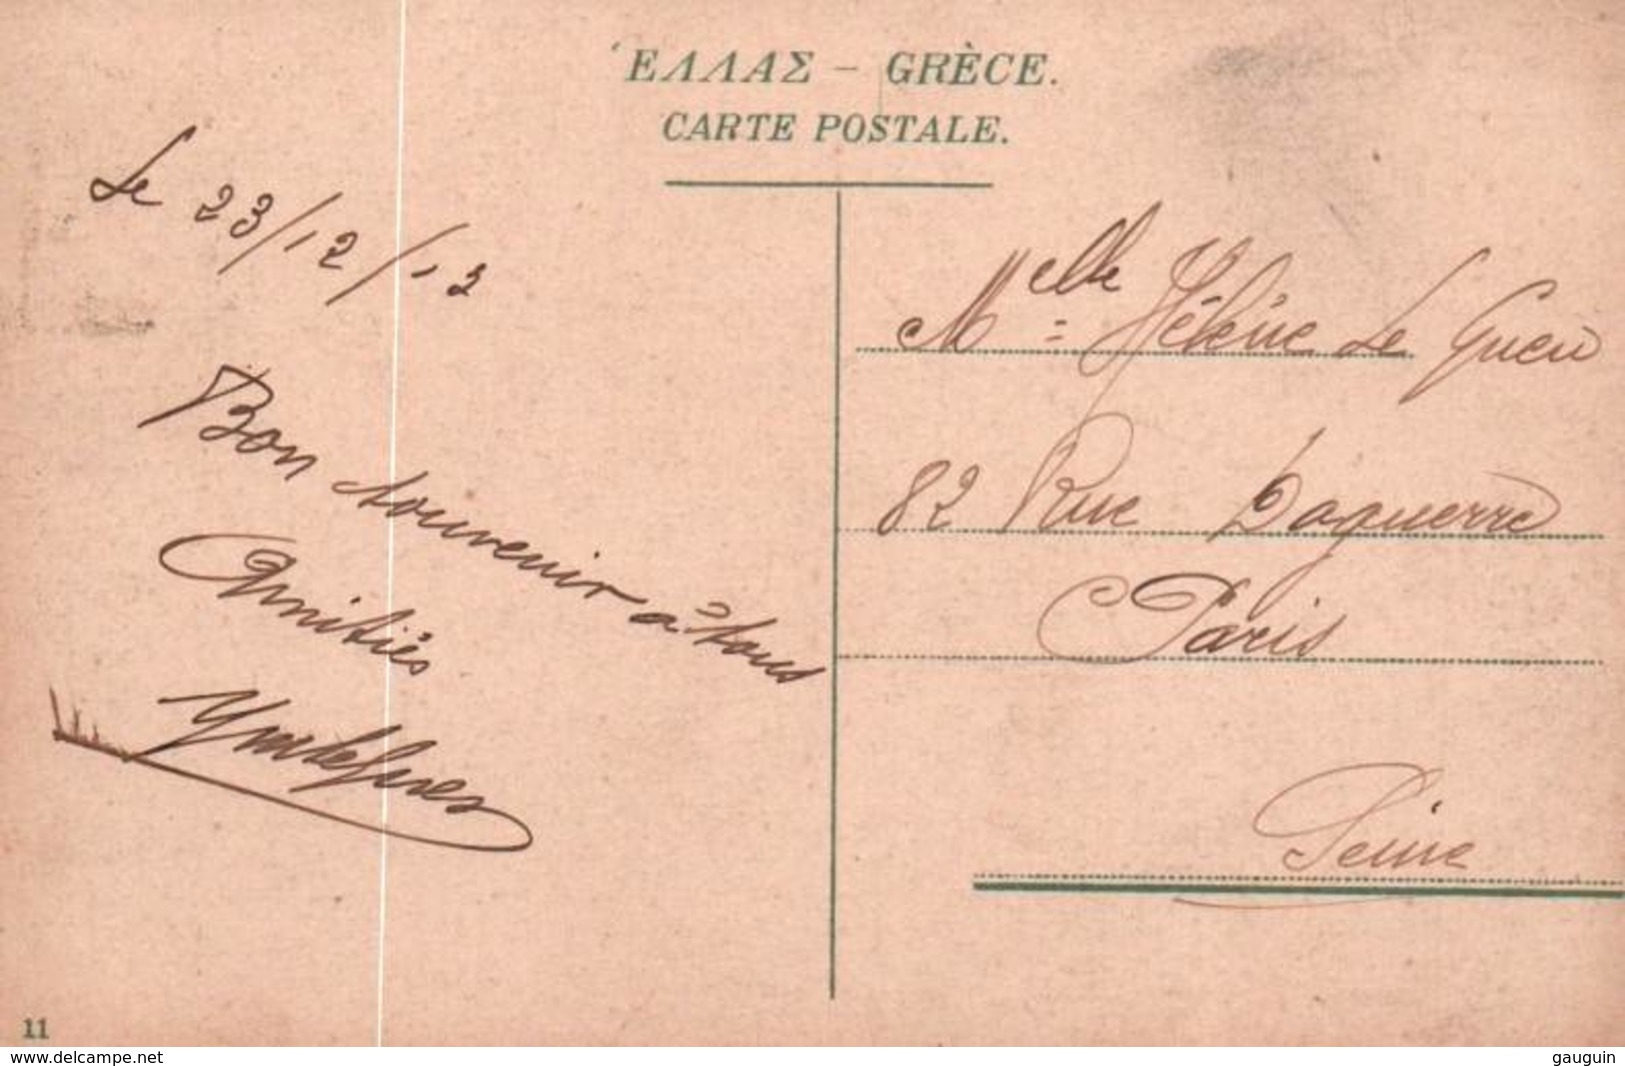 ἙΛΛΑΣ – GRÈCE.
CARTE POSTALE.
Le 23/12/12
Bon souvenir à tous
Amitiés
Melle Hélène Le Guen
82 Rue Daguerre
Paris
Seine
11
www.delcampe.net
gauguin